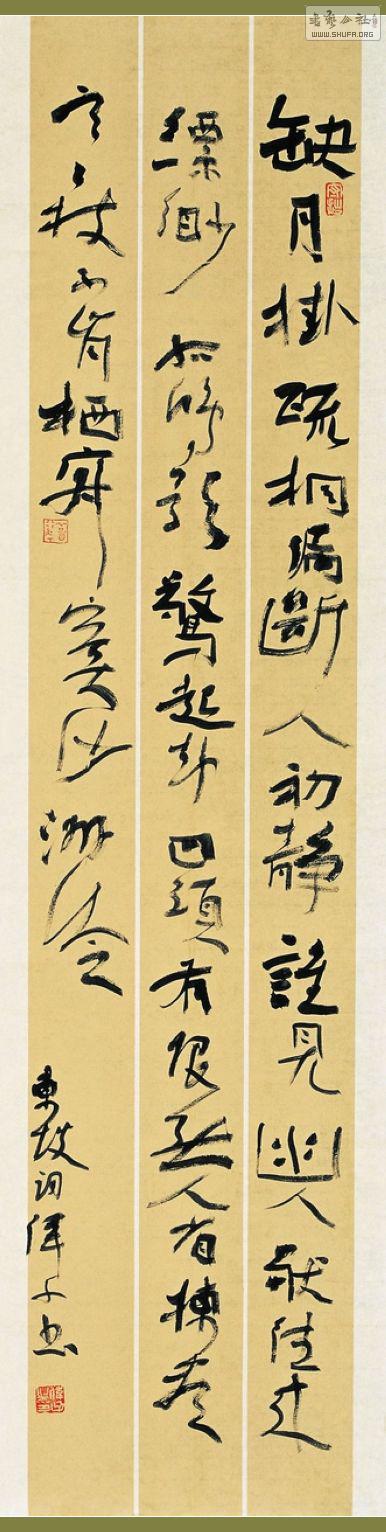 缺月掛疏桐漏斷人初静誰見幽人獨往来
縹緲孤鴻影驚起却回頭有恨無人省揀尽
寒枝不肯栖寂寞沙洲冷
東坡詞
书艺公社
WWW.SHUFA.ORG